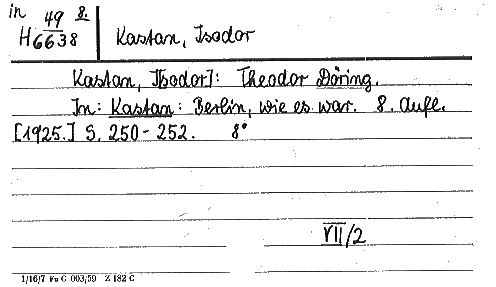 in 49 8.
H 6638
Kastan, Isodor
Kastan, I[sodor]: Theodor Döring.
In: Kastan: Berlin, wie es war. 8. Aufl.
[1925.] S. 250-252. 8°
VII/2
1/16/7 Fu G 003/59 Z 182 C